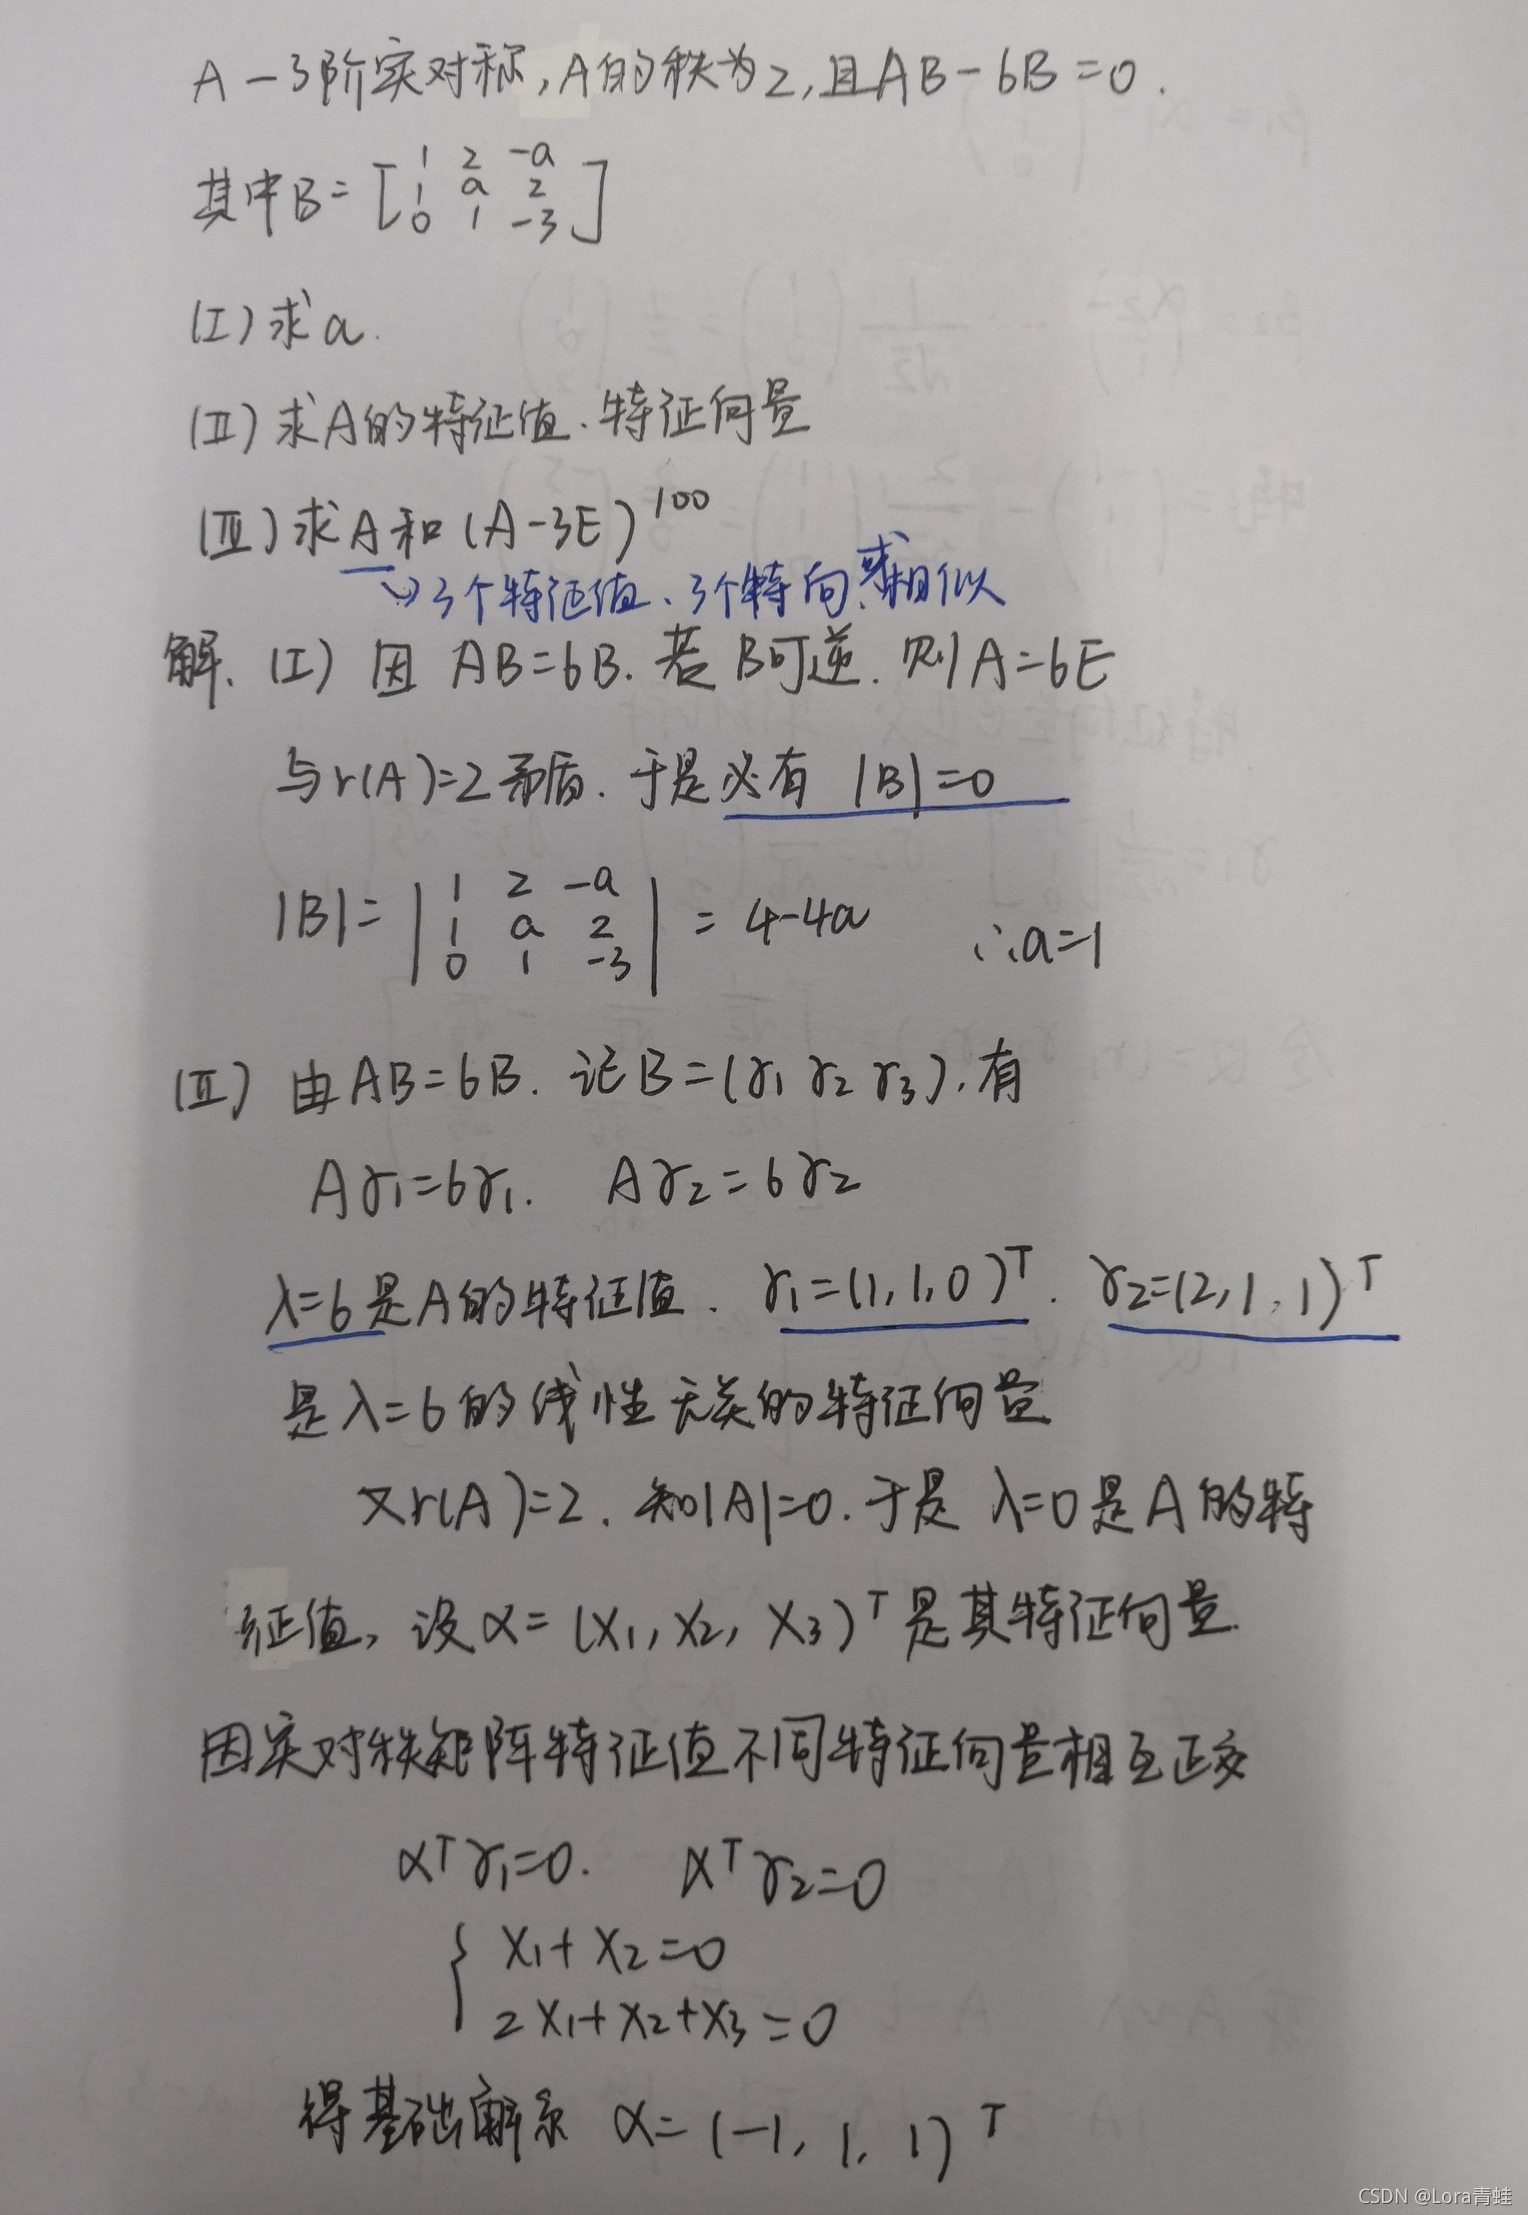 A-3阶实对称,A的秩为2,且AB-6B=0.
其中B=[1 2 -a
1 a 2
0 1 -3]
(I)求a.
(II)求A的特征值、特征向量
(III)求A和(A-3E)^100
→3个特征值、3个特向,或相似
解、(I)因 AB=6B.若B可逆.则A=6E
与r(A)=2矛盾.于是必有 |B|=0
|B|=|1 2 -a
1 a 2
0 1 -3| = 4-4a ∴a=1
(II) 由AB=6B.记B=(γ1 γ2 γ3),有
Aγ1=6γ1. Aγ2=6γ2
λ=6是A的特征值. γ1=(1,1,0)^T. γ2=(2,1,1)^T
是λ=6的线性无关的特征向量
又r(A)=2.知|A|=0.于是 λ=0是A的特
征值,设α=(x1,x2,x3)^T是其特征向量.
因实对秩矩阵特征值不同特征向量相互正交
α^Tγ1=0. α^Tγ2=0
{x1+x2=0
2x1+x2+x3=0
得基础解系 α=(-1,1,1)^T
CSDN @Lora青蛙